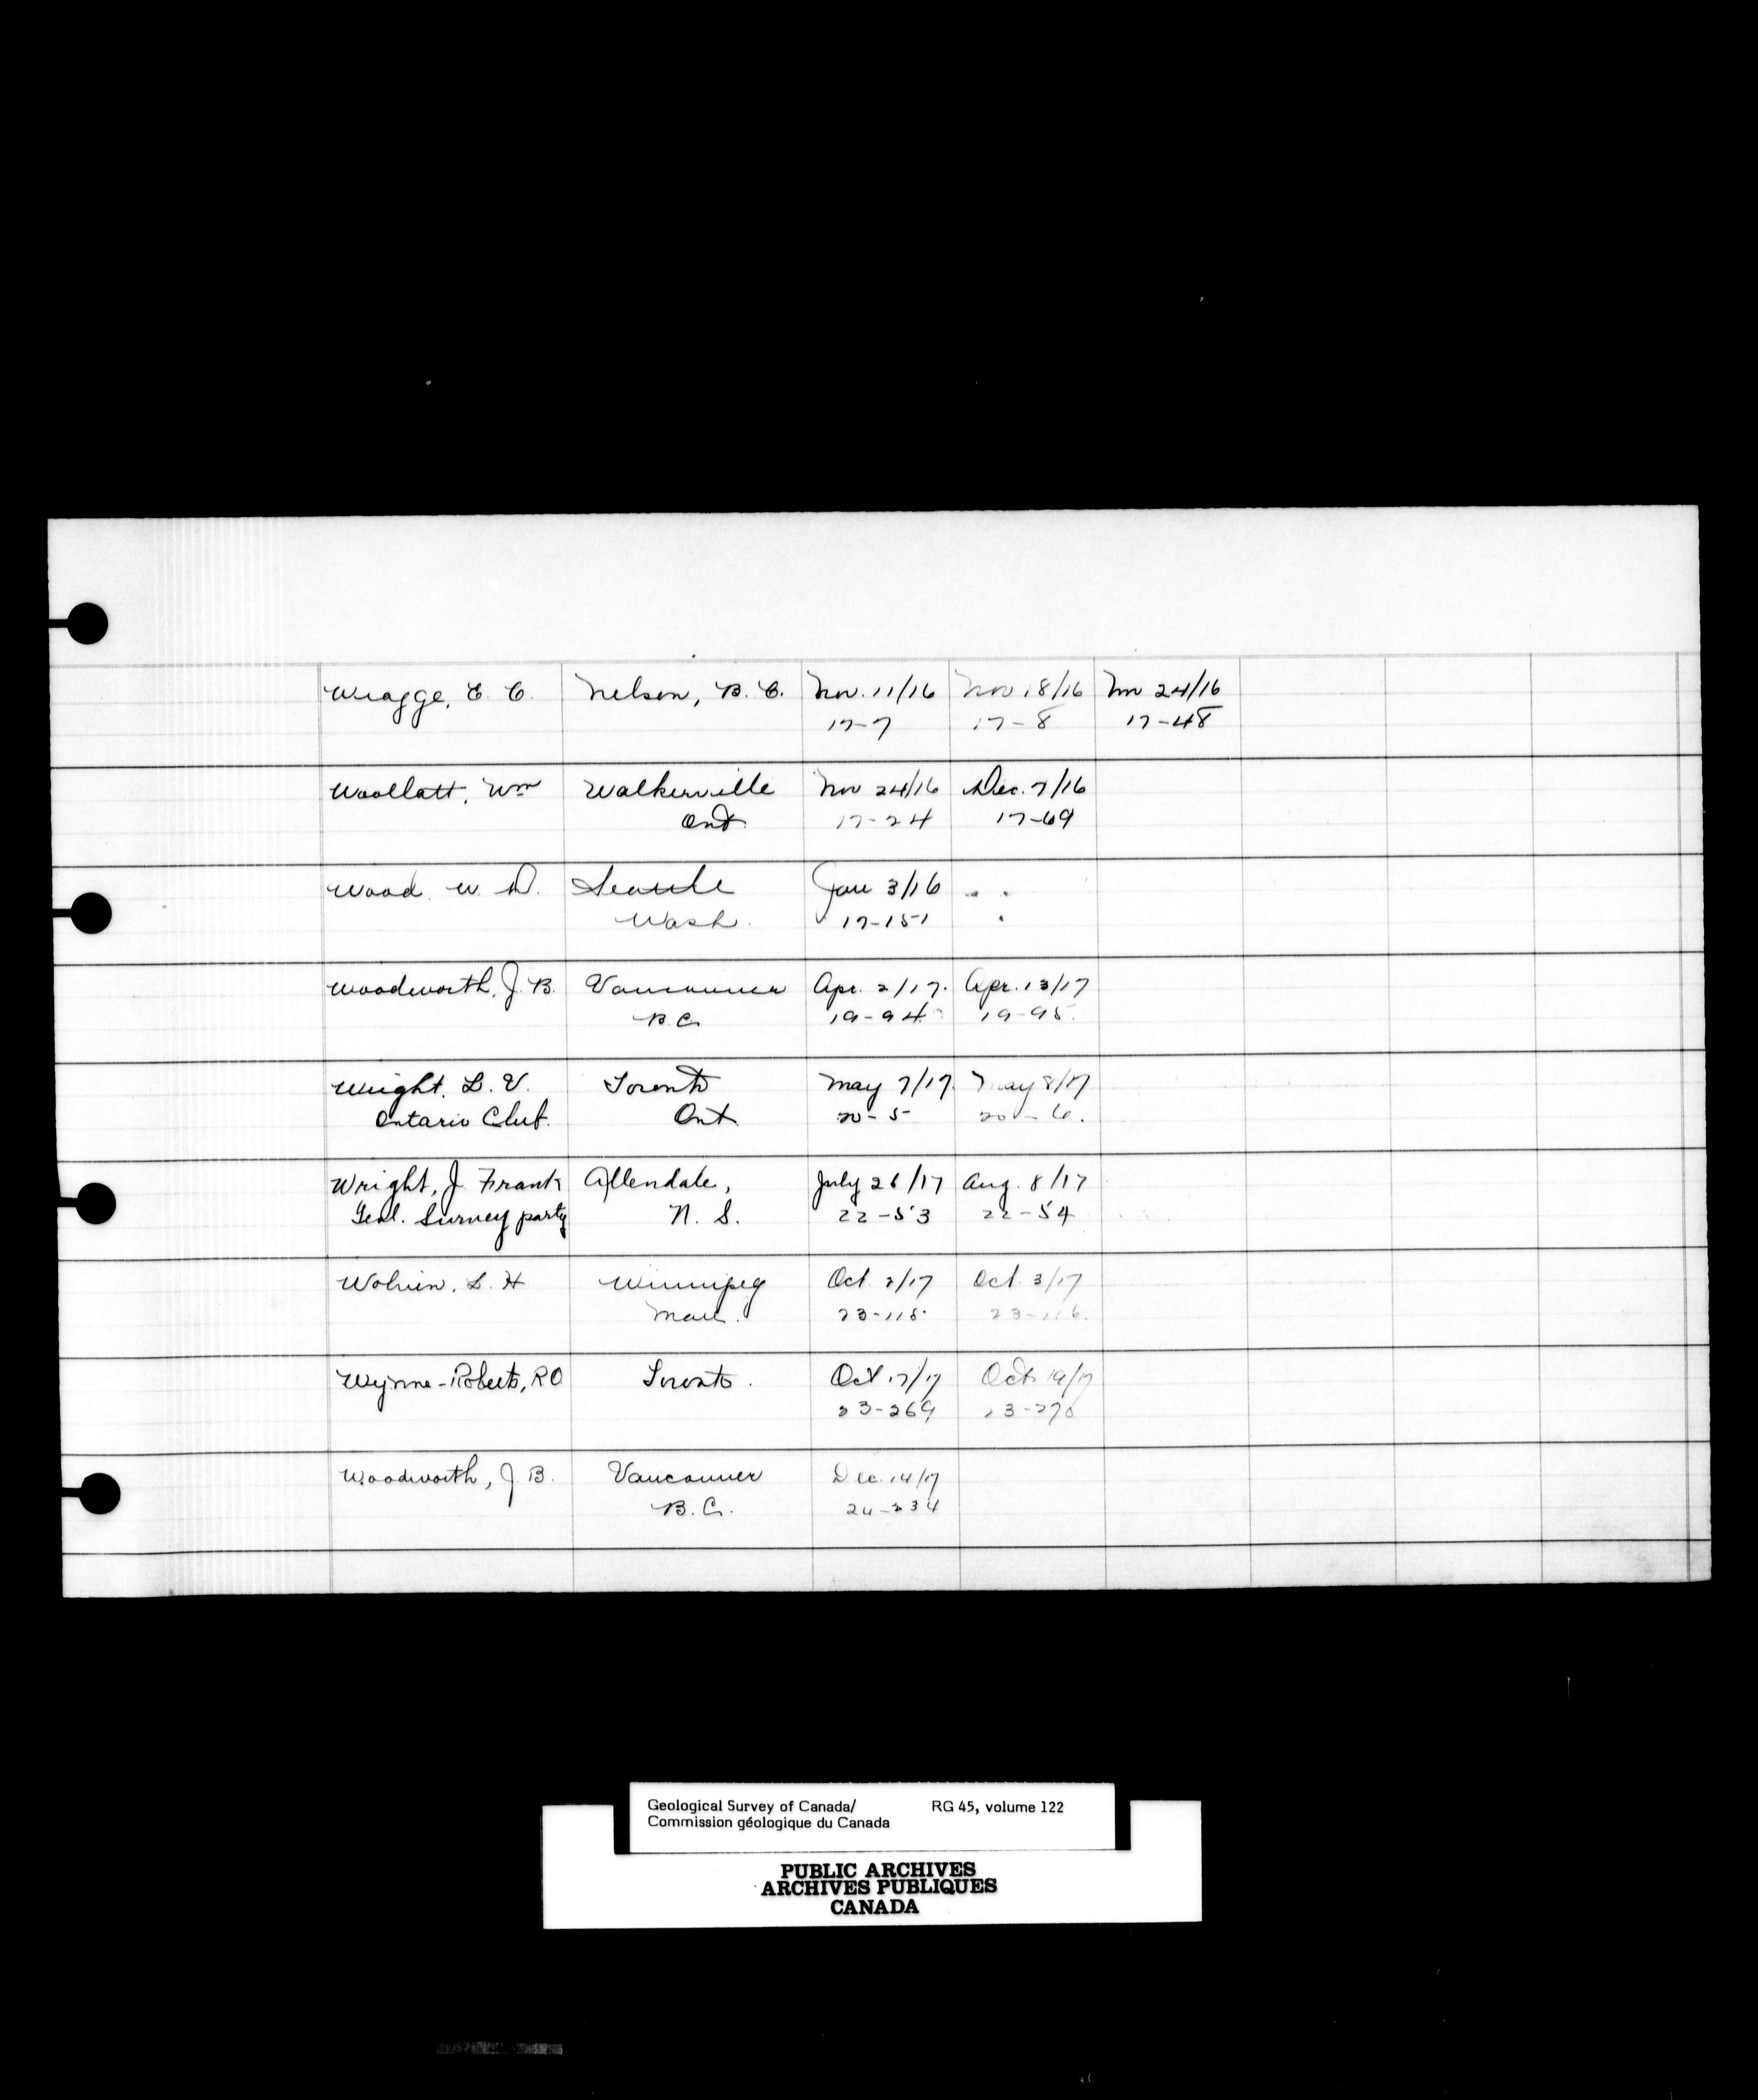 Wragge, E. C. Nelson, B. C. Nov. 11/16 Nov 18/16 Nov 24/16
17-7 17-8 17-48
Woollatt, Wm Walkerville Nov 24/16 Dec. 7/16
Ont. 17-24 17-69
Wood, W. D. Seattle Jan 3/16
Wash. 17-151
Woodworth, J. B. Vancouver Apr. 2/17. Apr. 13/17
B.C. 19-94 19-95.
Wright, L. V. Toronto May 7/17. May 8/17
Ontario Club. Ont. 20-5 20-6.
Wright, J. Frank Allendale, July 26/17 Aug. 8/17
Geol. Survey party N. S. 22-53 22-54
Wolvin, L. H Winnipeg Oct. 2/17 Oct. 3/17
Man. 23-115 23-116.
Wynne-Roberts, RO Toronto. Oct 17/17 Oct. 19/17
23-269 23-270
Woodworth, J. B. Vancouver Dec. 14/17
B.C. 24-234
Geological Survey of Canada/ RG 45, volume 122
Commission géologique du Canada
PUBLIC ARCHIVES
ARCHIVES PUBLIQUES
CANADA